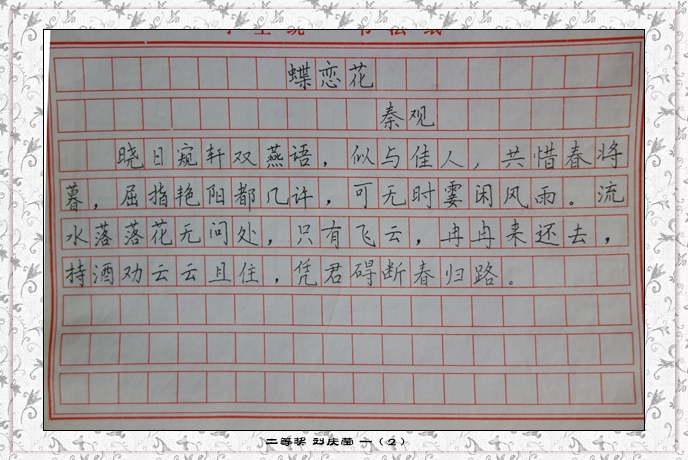 蝶恋花
秦观
晓日窥轩双燕语，似与佳人，共惜春将
暮，屈指艳阳都几许，可无时霎闲风雨。流
水落落花无问处，只有飞云，冉冉来还去，
持酒劝云云且住，凭君碍断春归路。
二等奖 刘庆 一（2）